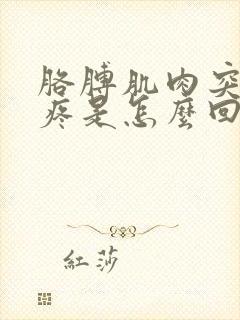 胳膊肌肉突
疼是怎麼回
紅莎